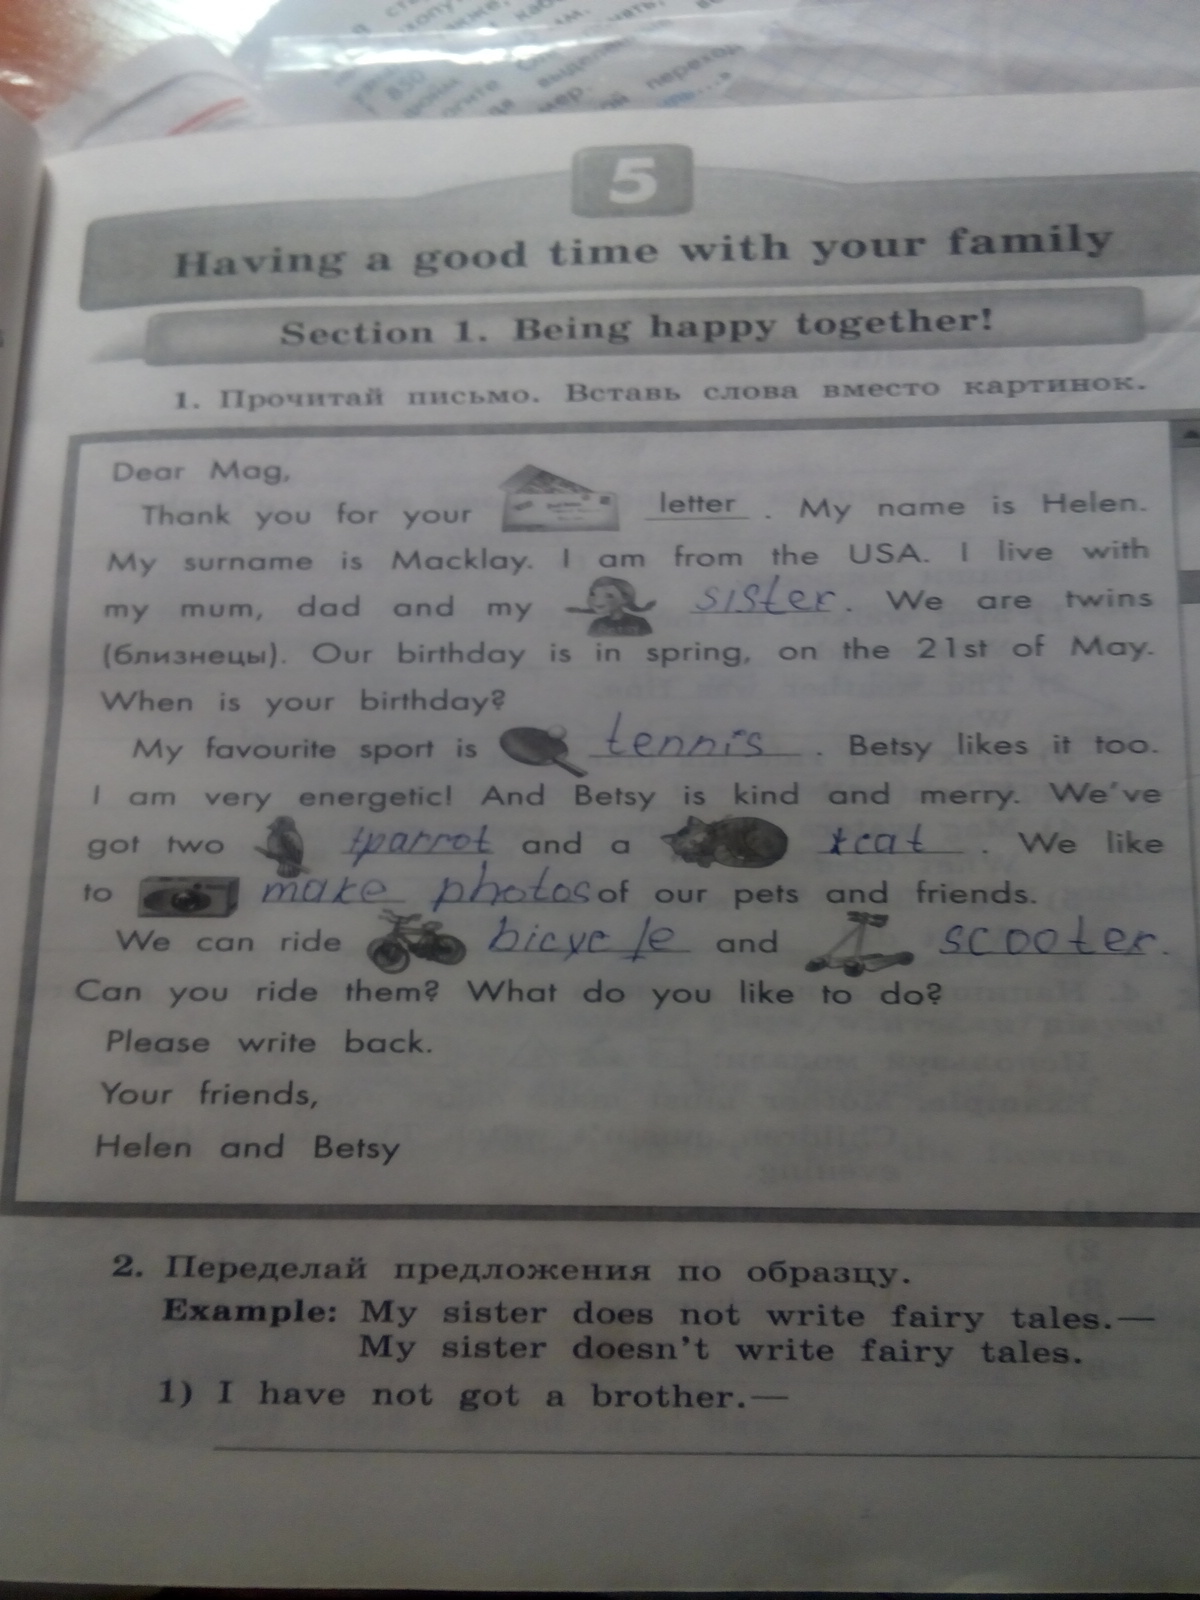 850
переход
5
Having a good time with your family
Section 1. Being happy together!
1. Прочитай письмо. Вставь слова вместо картинок.
Dear Mag,
Thank you for your letter . My name is Helen.
My surname is Macklay. I am from the USA. I live with
my mum, dad and my sister. We are twins
(близнецы). Our birthday is in spring, on the 21st of May.
When is your birthday?
My favourite sport is tennis . Betsy likes it too.
I am very energetic! And Betsy is kind and merry. We've
got two parrot and a cat . We like
to make photos of our pets and friends.
We can ride bicycle and scooter.
Can you ride them? What do you like to do?
Please write back.
Your friends,
Helen and Betsy
2. Переделай предложения по образцу.
Example: My sister does not write fairy tales.—
My sister doesn't write fairy tales.
1) I have not got a brother.—